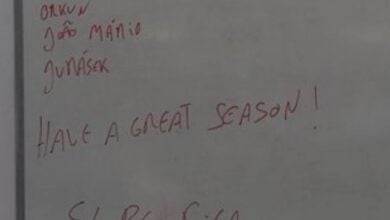 ORKUN
JOÃO MÁRIO
JURÁSEK
HAVE A GREAT SEASON!